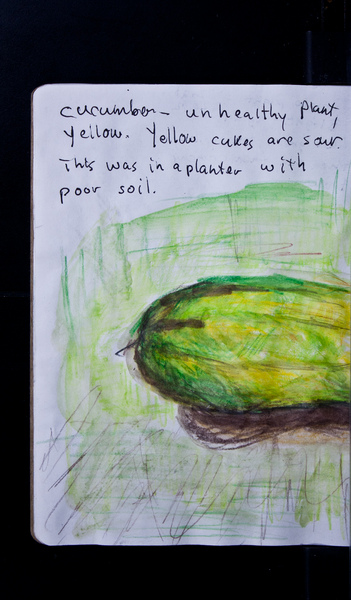 cucumber - unhealthy plant,
yellow. Yellow cukes are sour.
This was in a planter with
poor soil.